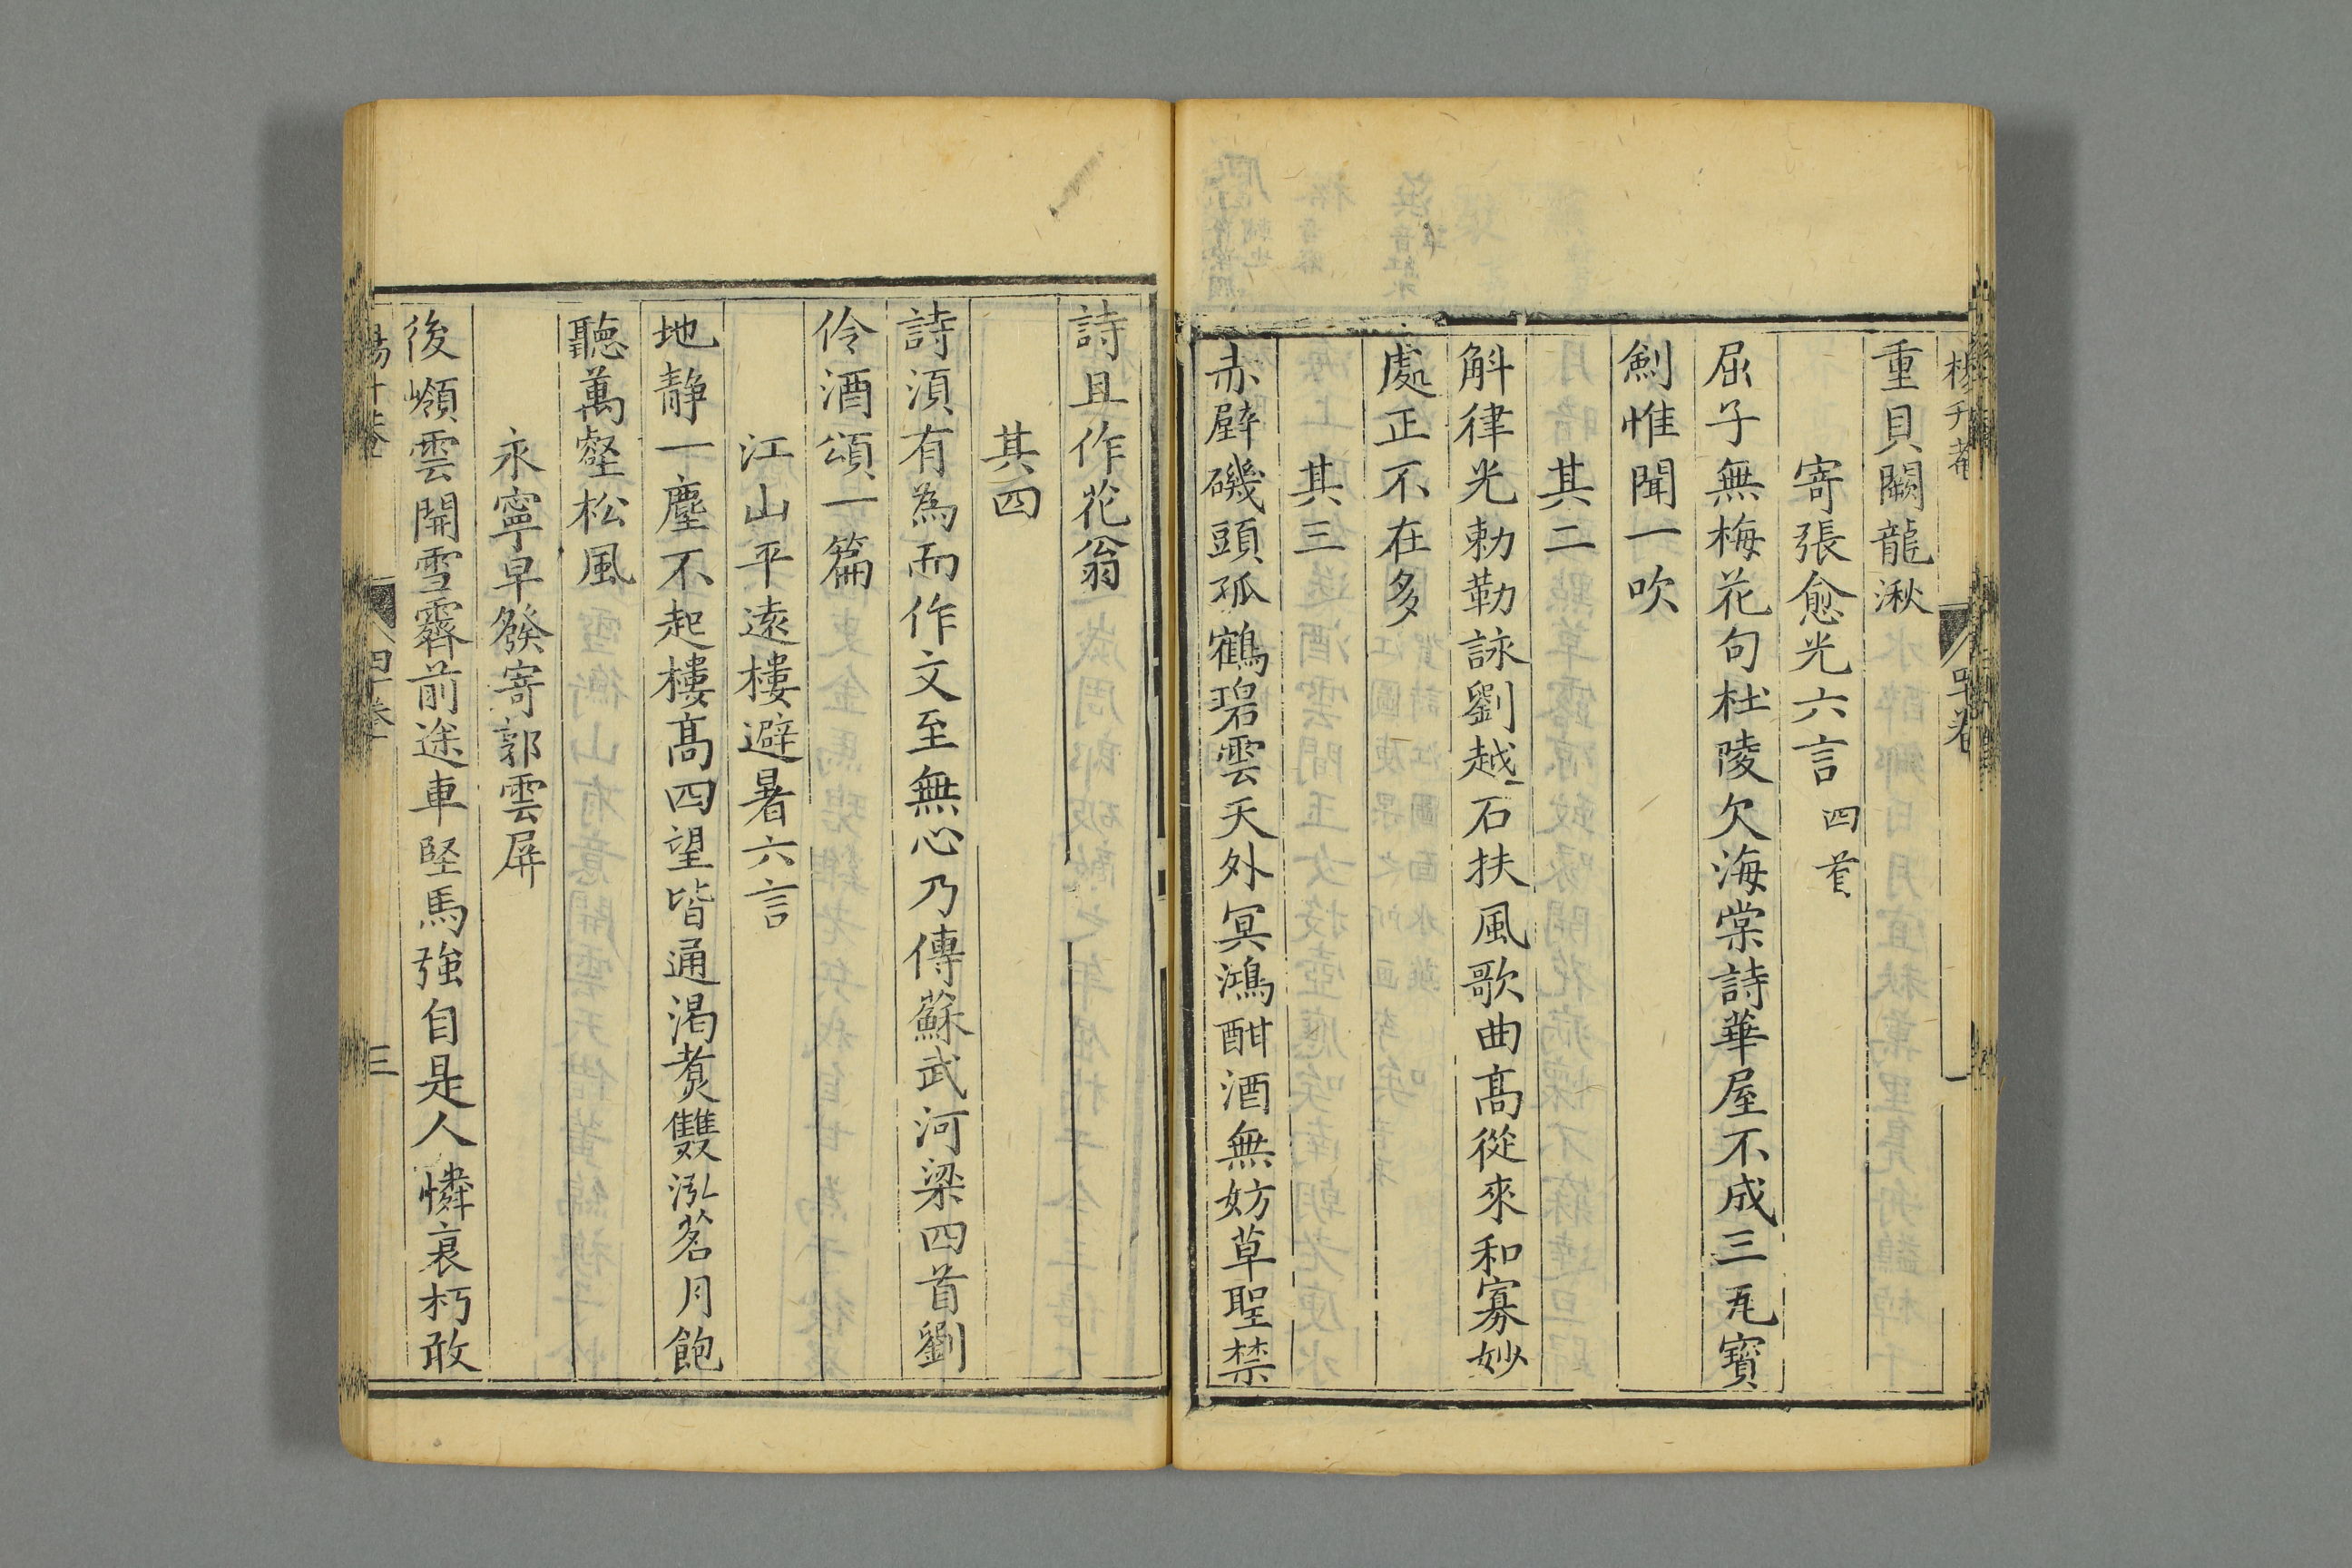 重貝闕龍湫
寄張愈光六言 四首
屈子無梅花句杜陵欠海棠詩華屋不成三瓦寳
劍惟聞一吹
其二
斛律光勅勒詠劉越石扶風歌曲髙從來和寡妙
處正不在多
其三
赤壁磯頭孤鶴碧雲天外冥鴻酣酒無妨草聖禁
詩且作花翁
其四
詩湏有為而作文至無心乃傳蘇武河梁四首劉
伶酒頌一篇
江山平遠樓避暑六言
地静一塵不起樓髙四望皆通渴煮雙泓茗月飽
聽萬壑松風
永寧早發寄郭雲屏
後嶺雲開雪霽前途車堅馬強自是人憐衰朽敢
三